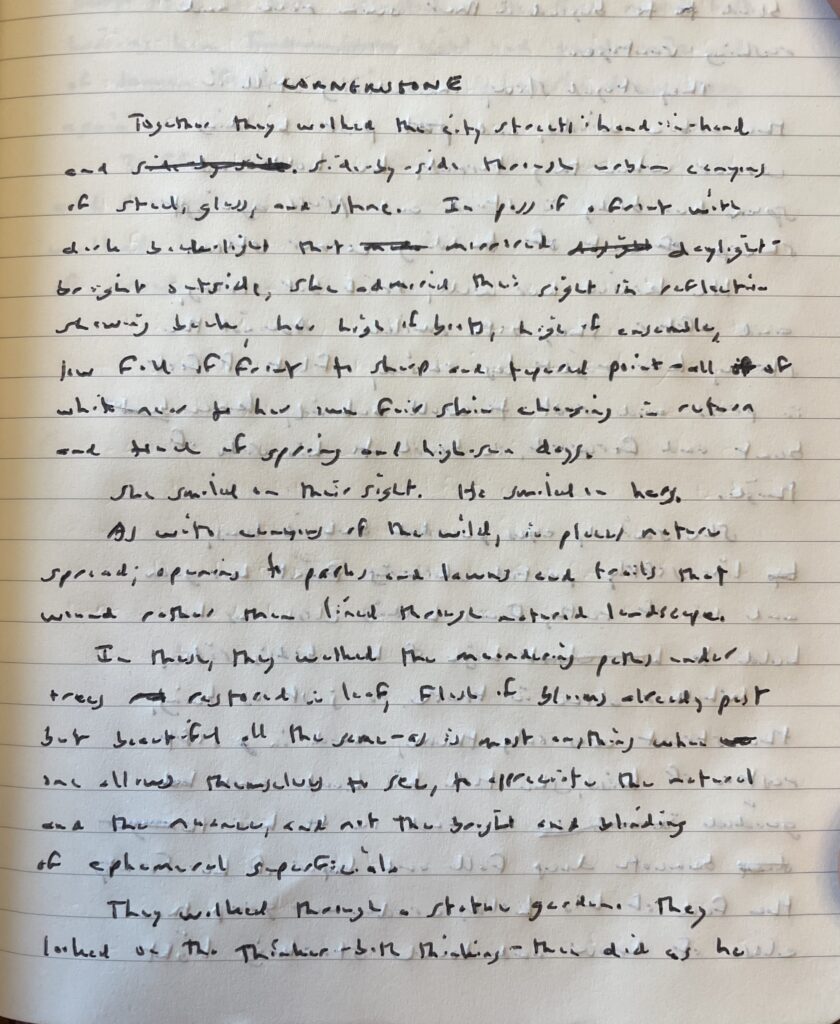 CORNERSTONE
Together they walked the city streets hand-in-hand
and side-by-side. side-by-side through urban canyons
of steel, glass, and stone. In pass of a front with
dark backlight that mirrored daylight-
bright outside, she admired their sight in reflection
showing back, her high of boots, high of ensemble,
low fall of front to sharp and tapered point-all of
white near to her own fair skin changing in return
and touch of spring and high-sun days.
She smiled on their sight. He smiled on hers.
As with canyons of the wild, in places nature
spread; opening to parks and lawns and trails that
wound rather than lined through natured landscape.
In these, they walked the meandering paths under
trees restored in leaf, flush of blooms already past
but beautiful all the same-as is most anything when
one allows themselves to see, to appreciate the natural
and the nuance, and not the bright and blinding
of ephemeral superficials.
They walked through a statue garden. They
looked on the Thinker-both thinking-then did as he